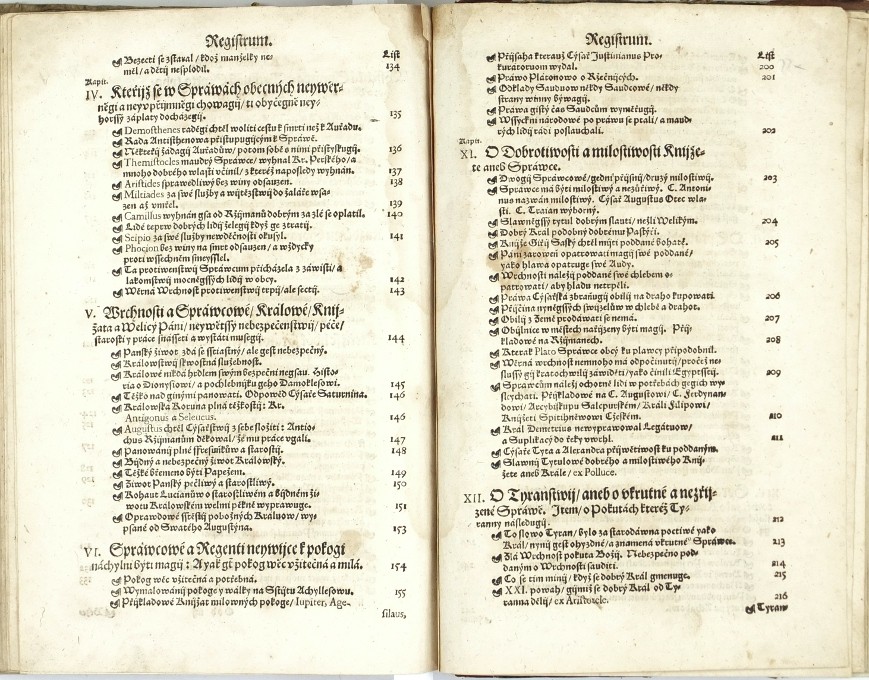 Registrum.
Bezdětci se zstaral / když manželky ne- List
měl / a dětij nesplodil. 134
Kapit.
IV. Kteřijž se w Spráwách obecných neywěr-
něgi a neyvpřijmněgi chowagij / ti obyčegně ney-
horssý záplaty docházegij. 135
Demosthenes raděgi chtěl woliti cestu k smrti než k Auřadu.
Rada Antisthenowa přistupugijcým k Spráwě.
Někteřij žádagij Auřadůw / potom sobě s nimi přistyskugij. 136
Themistocles maudrý Spráwce / wyhnal Kr. Perského / a
mnoho dobrého wlasti včinil / z kteréž naposledy wyhnán. 137
Aristides sprawedliwý bez winy odsauzen. 138
Miltiades za swé služby a wijtězstwij do žaláře wsa-
zen až vmřel. 139
Camillus wyhnán gsa od Ržijmanů dobrým za zlé se oplatil. 140
Lidé teprw dobrých lidij želegij když ge ztratij.
Scipio za swé služby newděčnosti okusyl. 141
Phocion bez winy na smrt odsauzen / a wždycky
proti wssechněm smeysslel.
Ta protiwenstwij Spráwcum přicházela z záwisti / a
lakomstwij mocněgssých lidij w obcy. 142
Wěrná Wrchnost protiwenstwij trpij / ale sectij. 143
V. Wrchnosti a Spráwcowé / Králowé / Knij-
žata a Welicý Páni / neywětssý nebezpečenstwij / péče /
starosti y práce snásseti a wystáti musegij. 144
Panský žiwot zdá se sstiastný / ale gest nebezpečný.
Králowstwij skwostná služebnost.
Králowé nikdá hrdlem swým bezpečni negsau. Histo-
ria o Dionysiowi / a pochlebnijku geho Damoklesowi. 145
Těžko nad ginými panowati. Odpowěd Cýsaře Saturnina. 146
Králowská Koruna plná těžkostij: Kr.
Antigonus a Seleucus. 146
Augustus chtěl Cýsařstwij z sebe složiti: Antio-
chus Ržijmanům děkowal / že mu práce vgali. 147
Panowánij plné ssřesnikůw a starostij. 148
Bijdný a nebezpečný žiwot Králowský.
Těžké břemeno býti Papežem. 149
Žiwot Panský pečliwý a starostliwý. 150
Kohaut Lucianůw o starostliwém a bijdném ži-
wotu Králowském welmi pěkně wyprawuge. 151
Oprawdowé sstěstij pobožných Králuow / wy-
psané od Swatého Augustýna. 153
VI. Spráwcowé a Regenti neywijce k pokogi
náchylni býti magij: A yak gest pokog wěc vžitečná a milá. 154
Pokog wěc vžitečná a potřebná.
Wymalowánij pokoge y walky na Sstijtu Achyllesowu. 155
Přijkladowé Knijžat milownych pokoge / Iupiter, Age-
silaus,
Registrum.
Přijsaha kterauž Cýsař Justinianus Pro- List
kuratoruom wydal. 200
Práwo Platonowo o Ržečnijcých. 201
Odklady Saudůow někdy Saudcowé / někdy
strany winny býwagij.
Práwa gistý čas Saudcům wyměřugij.
Wssyckni národowé po práwu se ptali / a maud-
rých lidij rádi poslauchali. 202
Kapit.
XI. O Dobrotiwosti a milostiwosti Knijže-
te aneb Spráwce.
Dwogij Spráwcowé / gedni přijsnij / druzý milostiwij. 203
Spráwce má býti milostiwý a nezůřiwý. C. Antoni-
nus nazwán milostiwý. Cýsař Augustus Otec wla-
sti. C. Traian wýborný.
Slawněgssý tytul dobrým slauti / nežli Welikým. 204
Dobrý Král podobný dobrému Pastýři.
Knijže Giřij Saský chtěl mijti poddané bohaté. 205
Páni zároweň opatrowati magij swé poddané /
yako hlawa opatruge swé Audy.
Wrchnosti náležij poddané swé chlebem o-
patrowati / aby hladu netrpěli.
Práwa Cýsařská zbraňugij obilij na draho kupowati. 206
Přijčina nyněgssých swijzelůw w chlebě a drahot.
Obilij z Země prodáwati se nemá. 207
Obijlnice w městech nařijzeny býti magij. Přij-
kladowé na Ržijmanech. 208
Kterak Plato Spráwce obcý ku plawcy připodobnil.
Wěrná wrchnost nemnoho má odpočinutij / pročež ne-
slussý gij kratochwilij záwiděti / yako činili Egyptsstij. 209
Spráwcům náležij ochotně lidi w potřebách gegich wy-
slýchati. Přijkladowé na C. Augustowi / C. Ferdynan-
dowi / Arcybiskupu Salcpurském / Králi Filipowi /
Knijžeti Spitihněwowi Cžeském. 210
Král Demetrius newyprawowal Legátuow /
a Suplikacý do řeky wrchl. 211
Cýsaře Tyta a Alexandra přijwětiwost ku poddaným.
Slawnij Tytulowé dobrého a milostiwého Knij-
žete aneb Krále / ex Polluce.
XII. O Tyranstwij / aneb o vkrutné a nezřij-
zené Spráwě. Item / o Pokutách kteréž Ty-
ranny následugij. 212
To slowo Tyran / bylo za starodáwna poctiwé yako
Král / nynij gest ohyzdné / a znamená vkrutné Spráwce. 213
Zlá Wrchnost pokuta Božij. Nebezpečno pod-
daným o Wrchnosti sauditi. 214
Co se tím mijnij / když se dobrý Král gmenuge. 215
XXI. powah / gijmiž se dobrý Král od Ty-
ranna dělij / ex Aristotele. 216
Tyran-